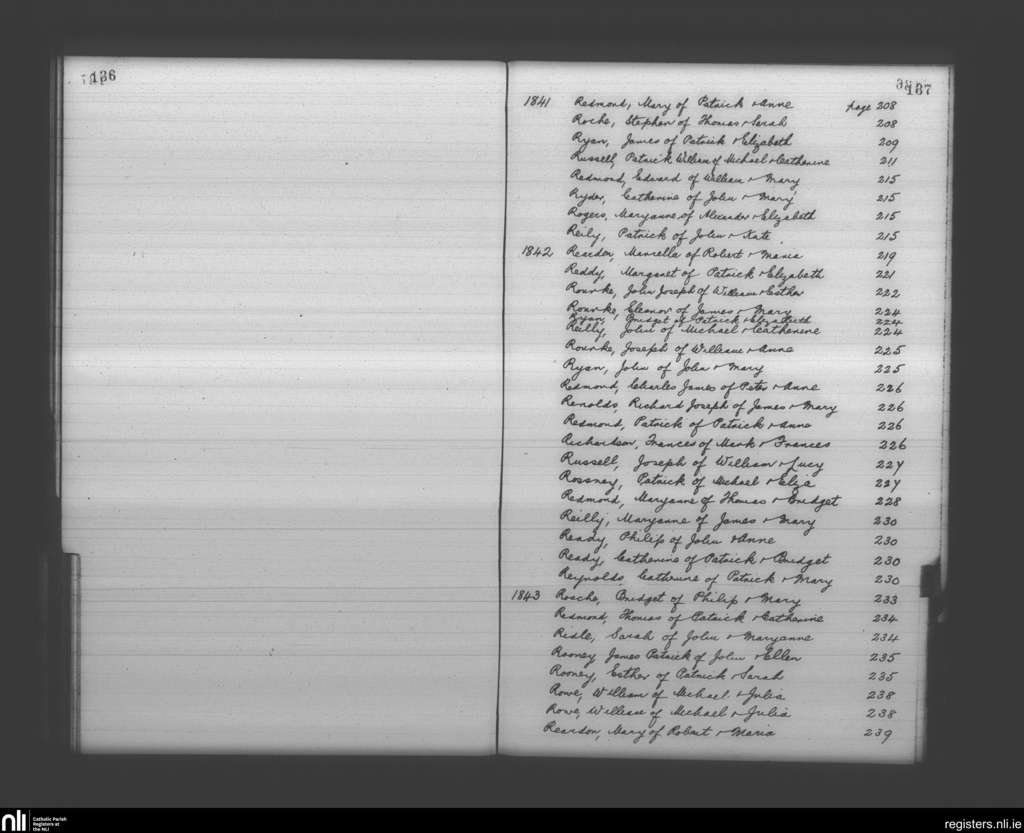 136
137
1841 Redmond, Mary of Patrick & Anne page 208
Roche, Stephen of Thomas & Sarah 208
Ryan, James of Patrick & Elizabeth 209
Russell, Patrick William of Michael & Catherine 211
Redmond, Edward of William & Mary 215
Ryder, Catherine of John & Mary 215
Rogers, Maryanne of Alexander & Elizabeth 215
Reily, Patrick of John & Kate 215
1842 Reardon, of Robert & Maria 219
Reddy, Margaret of Patrick & Elizabeth 221
Rourke, John Joseph of William & Esther 222
Rourke, Eleanor of James & Mary 224
Ryan, Bridget of Patrick & Elizabeth 224
Reilly, John of Michael & Catherine 224
Rourke, Joseph of William & Anne 225
Ryan, John of John & Mary 225
Redmond, Charles James of Peter & Anne 226
Renolds, Richard Joseph of James & Mary 226
Redmond, Patrick of Patrick & Anne 226
Richardson, Frances of Mark & Frances 226
Russell, Joseph of William & Lucy 227
Rossney, Patrick of Michael & Eliza 227
Redmond, Maryanne of Thomas & Bridget 228
Reilly, Maryanne of James & Mary 230
Ready, Philip of John & Anne 230
Ready, Catherine of Patrick & Bridget 230
Reynolds, Catherine of Patrick & Mary 230
1843 Roache, Bridget of Philip & Mary 233
Redmond, Thomas of Patrick & Catherine 234
Risle, Sarah of John & Maryanne 234
Rooney James Patrick of John & Ellen 235
Rooney, Esther of Patrick & Sarah 235
Rowe, William of Michael & Julia 238
Rowe, William of Michael & Julia 238
Reardon, Mary of Robert & Maria 239
nli Catholic Parish
Registers at
the NLI
registers.nli.ie